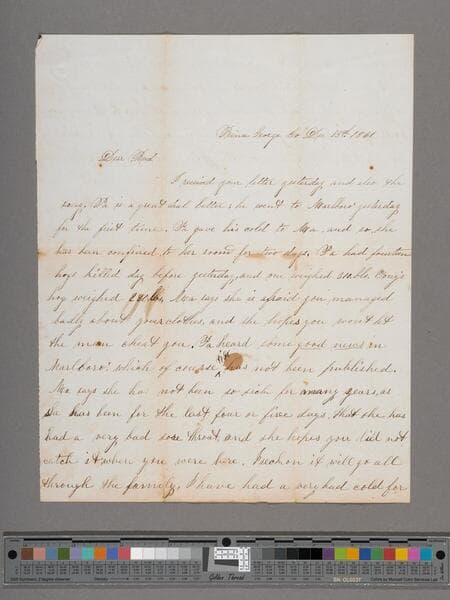 Prince George Co Dec 13th, 1861
Dear Bud
I received your letter yesterday and also the
song. Pa is a great deal better; he went to Marlboro' yesterday
for the first time. Pa gave his cold to Ma, and so, she
has been confined to her room for two days. Pa had fourteen
hogs killed day before yesterday, and one weighed 310 lbs. Craig's
hog weighed lbs. Ma says she is afraid you managed
badly about your clothes, and she hopes you won't let
the man cheat you. Pa heard some good news in
Marlboro'; which of course it has not been published.
Ma says she has not been so sick for many years, as
she has been for the last four or five days. that she has
had a very bad sore throat, and she hopes you did not
catch it when you were here. I reckon it will go all
through the family. I have had a very bad cold for
Golden Thread